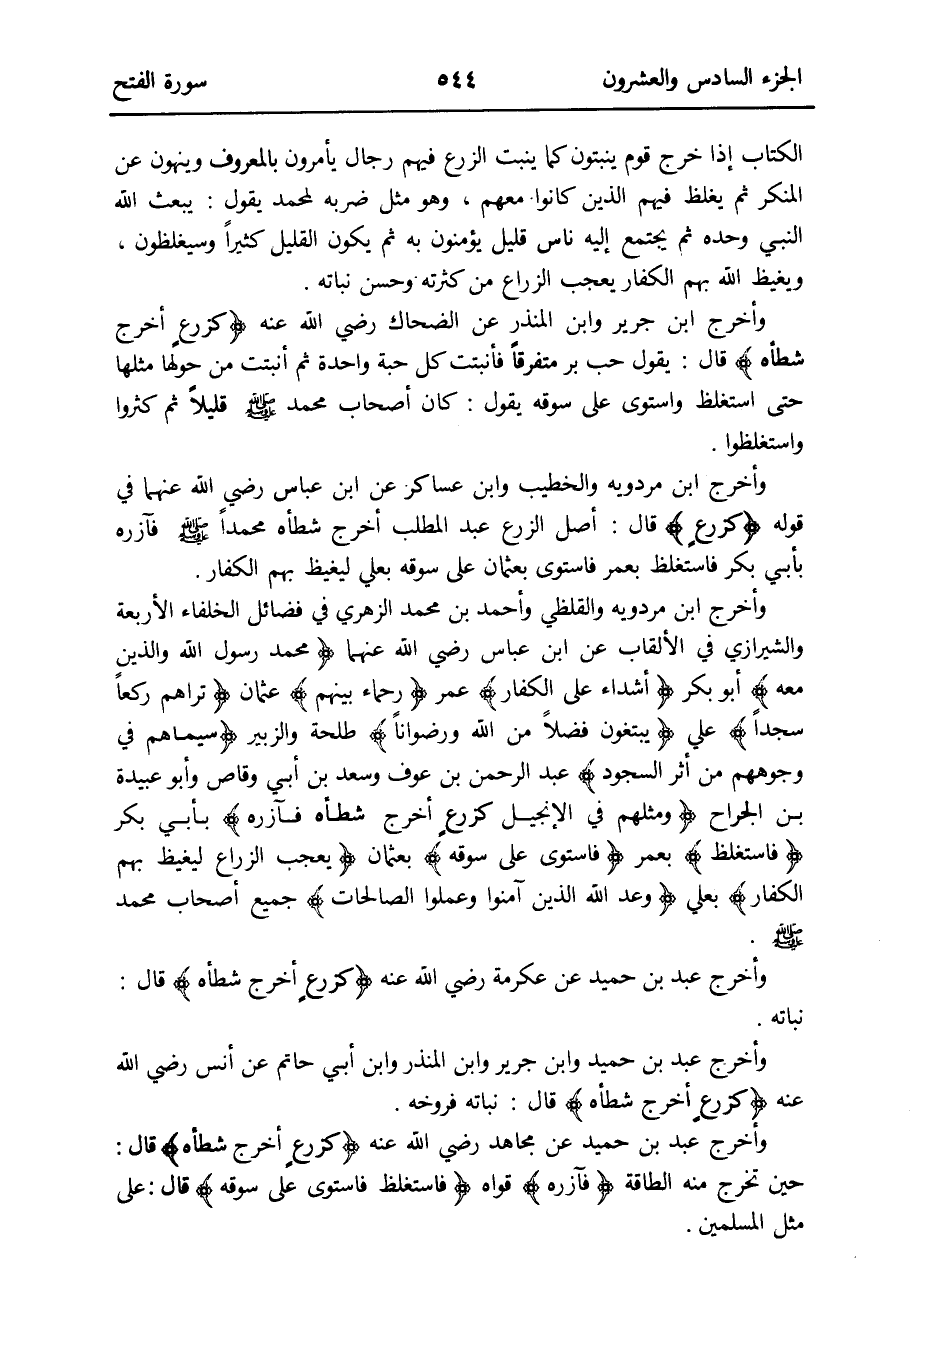 الجزء السادس والعشرون ٥٤٤ سورة الفتح
الكتاب إذا خرج قوم ينبتون كما ينبت الزرع فيهم رجال يأمرون بالمعروف وينهون عن
المنكر ثم يغلظ فيهم الذين كانوا معهم ، وهو مثل ضربه لمحمد يقول : يبعث الله
النبي وحده ثم يجتمع إليه ناس قليل يؤمنون به ثم يكون القليل كثيراً وسيغلظون ،
ويغيظ الله بهم الكفار يعجب الزراع من كثرته وحسن نباته .
وأخرج ابن جرير وابن المنذر عن الضحاك رضي الله عنه ﴿كزرعٍ أخرج
شطأه﴾ قال : يقول حب بر متفرقاً فأنبتت كل حبة واحدة ثم أنبتت من حولها مثلها
حتى استغلظ واستوى على سوقه يقول : كان أصحاب محمد ﷺ قليلاً ثم كثروا
واستغلظوا .
وأخرج ابن مردويه والخطيب وابن عساكر عن ابن عباس رضي الله عنهما في
قوله ﴿كزرعٍ﴾ قال : أصل الزرع عبد المطلب أخرج شطأه محمداً ﷺ فآزره
بأبي بكر فاستغلظ بعمر فاستوى بعثمان على سوقه بعلي ليغيظ بهم الكفار .
وأخرج ابن مردويه والقلظي وأحمد بن محمد الزهري في فضائل الخلفاء الأربعة
والشيرازي في الألقاب عن ابن عباس رضي الله عنهما ﴿محمد رسول الله والذين
معه﴾ أبو بكر ﴿أشداء على الكفار﴾ عمر ﴿رحماء بينهم﴾ عثمان ﴿تراهم ركعاً
سجداً﴾ علي ﴿يبتغون فضلاً من الله ورضواناً﴾ طلحة والزبير ﴿سيماهم في
وجوههم من أثر السجود﴾ عبد الرحمن بن عوف وسعد بن أبي وقاص وأبو عبيدة
بن الجراح ﴿ومثلهم في الإنجيل كزرعٍ أخرج شطأه فآزره﴾ بأبي بكر
﴿فاستغلظ﴾ بعمر ﴿فاستوى على سوقه﴾ بعثمان ﴿يعجب الزراع ليغيظ بهم
الكفار﴾ بعلي ﴿وعد الله الذين آمنوا وعملوا الصالحات﴾ جميع أصحاب محمد
ﷺ .
وأخرج عبد بن حميد عن عكرمة رضي الله عنه ﴿كزرعٍ أخرج شطأه﴾ قال :
نباته .
وأخرج عبد بن حميد وابن جرير وابن المنذر وابن أبي حاتم عن أنس رضي الله
عنه ﴿كزرعٍ أخرج شطأه﴾ قال : نباته فروخه .
وأخرج عبد بن حميد عن مجاهد رضي الله عنه ﴿كزرعٍ أخرج شطأه﴾ قال :
حين تخرج منه الطاقة ﴿فآزره﴾ قواه ﴿فاستغلظ فاستوى على سوقه﴾ قال : على
مثل المسلمين .